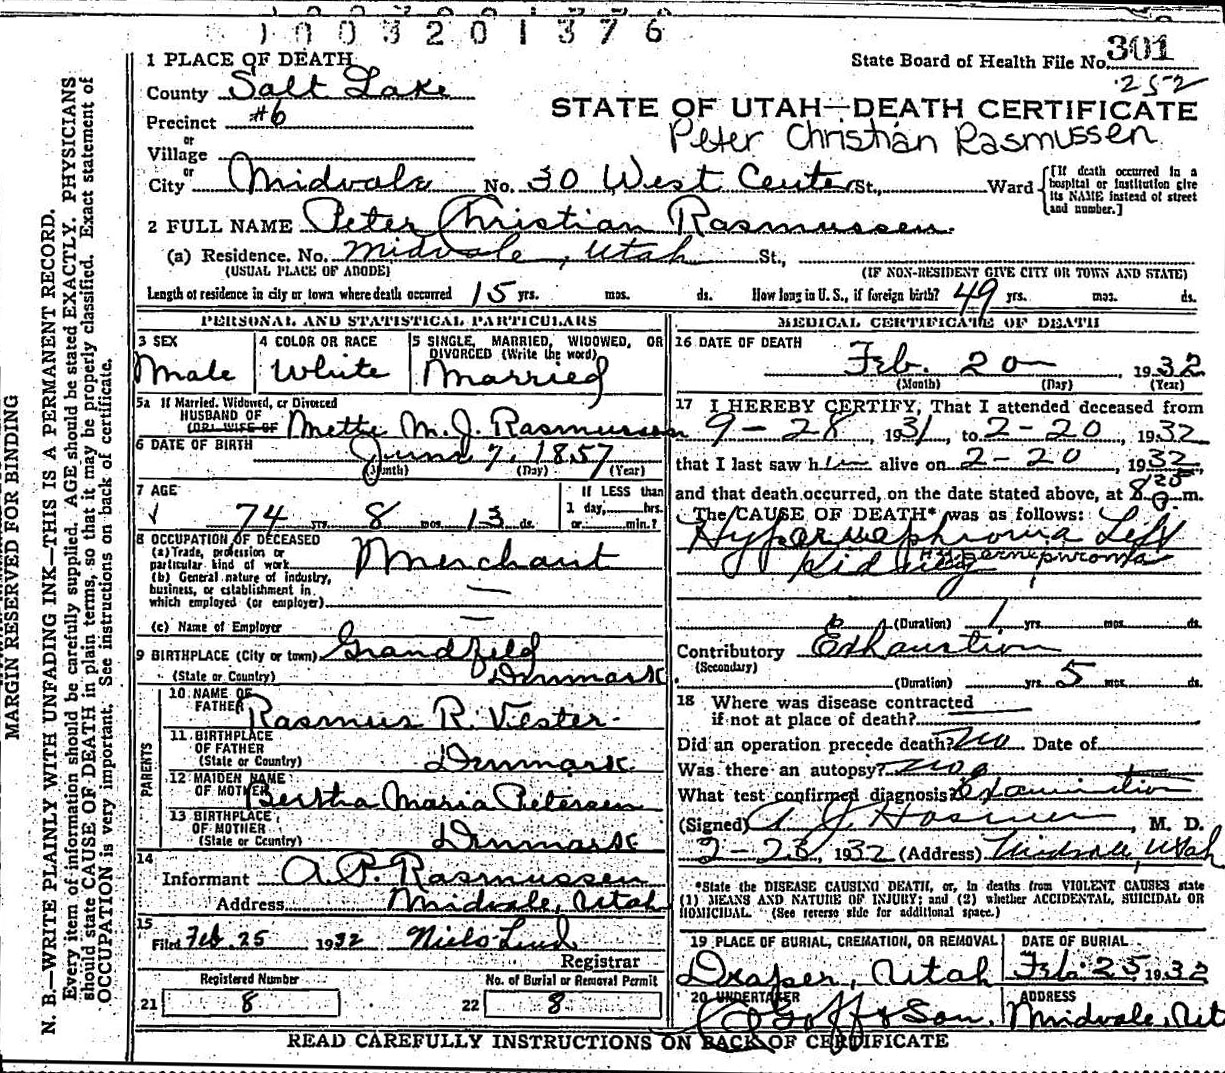 1003201376
1 PLACE OF DEATH
State Board of Health File No. 301
252
County Salt Lake
STATE OF UTAH—DEATH CERTIFICATE
Precinct #6
Peter Christian Rasmussen
or
Village
or
City Midvale No. 30 West Center St., Ward [If death occurred in a hospital or institution give its NAME instead of street and number.]
2 FULL NAME Peter Christian Rasmussen
(a) Residence. No. Midvale, Utah St.,
(USUAL PLACE OF ABODE) (IF NON-RESIDENT GIVE CITY OR TOWN AND STATE)
Length of residence in city or town where death occurred 15 yrs. mos. ds. How long in U. S., if foreign birth? 49 yrs. mos. ds.
PERSONAL AND STATISTICAL PARTICULARS
3 SEX
Male
4 COLOR OR RACE
White
5 SINGLE, MARRIED, WIDOWED, OR
DIVORCED (Write the word)
Married
5a If Married, Widowed, or Divorced
HUSBAND OF
(OR) WIFE OF Mette M. J. Rasmussen
6 DATE OF BIRTH June 7, 1857
(Month) (Day) (Year)
7 AGE
74 yrs. 8 mos. 13 ds.
If LESS than
1 day, hrs.
or min.?
8 OCCUPATION OF DECEASED
(a) Trade, profession or
particular kind of work Merchant
(b) General nature of industry,
business, or establishment in
which employed (or employer) —
(c) Name of Employer —
9 BIRTHPLACE (City or town) Grandfeld
(State or Country) Denmark
PARENTS
10 NAME OF
FATHER Rasmus R. Viester
11 BIRTHPLACE
OF FATHER
(State or Country) Denmark
12 MAIDEN NAME
OF MOTHER Bertha Maria Petersen
13 BIRTHPLACE
OF MOTHER
(State or Country) Denmark
14
Informant A. P. Rasmussen
Address Midvale, Utah
15
Filed Feb. 25 1932 Niels Lind
Registrar
Registered Number
21 8
No. of Burial or Removal Permit
22 8
MEDICAL CERTIFICATE OF DEATH
16 DATE OF DEATH
Feb. 20 1932
(Month) (Day) (Year)
17 I HEREBY CERTIFY, That I attended deceased from
9-28, 1931 to 2-20, 1932
that I last saw him alive on 2-20, 1932,
and that death occurred, on the date stated above, at 8 20 P. m.
The CAUSE OF DEATH* was as follows:
Hypernephroma Left
Kidney Hypernephroma
(Duration) 1 yrs. mos. ds.
Contributory Exhaustion
(Secondary)
(Duration) yrs. 5 mos. ds.
18 Where was disease contracted
if not at place of death?
Did an operation precede death? No Date of
Was there an autopsy? No
What test confirmed diagnosis? Examination
(Signed) A J. Hosmer, M. D.
2-23, 1932 (Address) Midvale, Utah
*State the DISEASE CAUSING DEATH, or, in deaths from VIOLENT CAUSES state
(1) MEANS AND NATURE OF INJURY; and (2) whether ACCIDENTAL, SUICIDAL OR
HOMICIDAL. (See reverse side for additional space.)
19 PLACE OF BURIAL, CREMATION, OR REMOVAL
Draper, Utah
DATE OF BURIAL
Feb. 25 1932
20 UNDERTAKER
Goff & Son.
ADDRESS
Midvale, Ut
READ CAREFULLY INSTRUCTIONS ON BACK OF CERTIFICATE
MARGIN RESERVED FOR BINDING
N. B.—WRITE PLAINLY WITH UNFADING INK—THIS IS A PERMANENT RECORD.
Every item of information should be carefully supplied. AGE should be stated EXACTLY. PHYSICIANS
should state CAUSE OF DEATH in plain terms, so that it may be properly classified. Exact statement of
OCCUPATION is very important. See instructions on back of certificate.